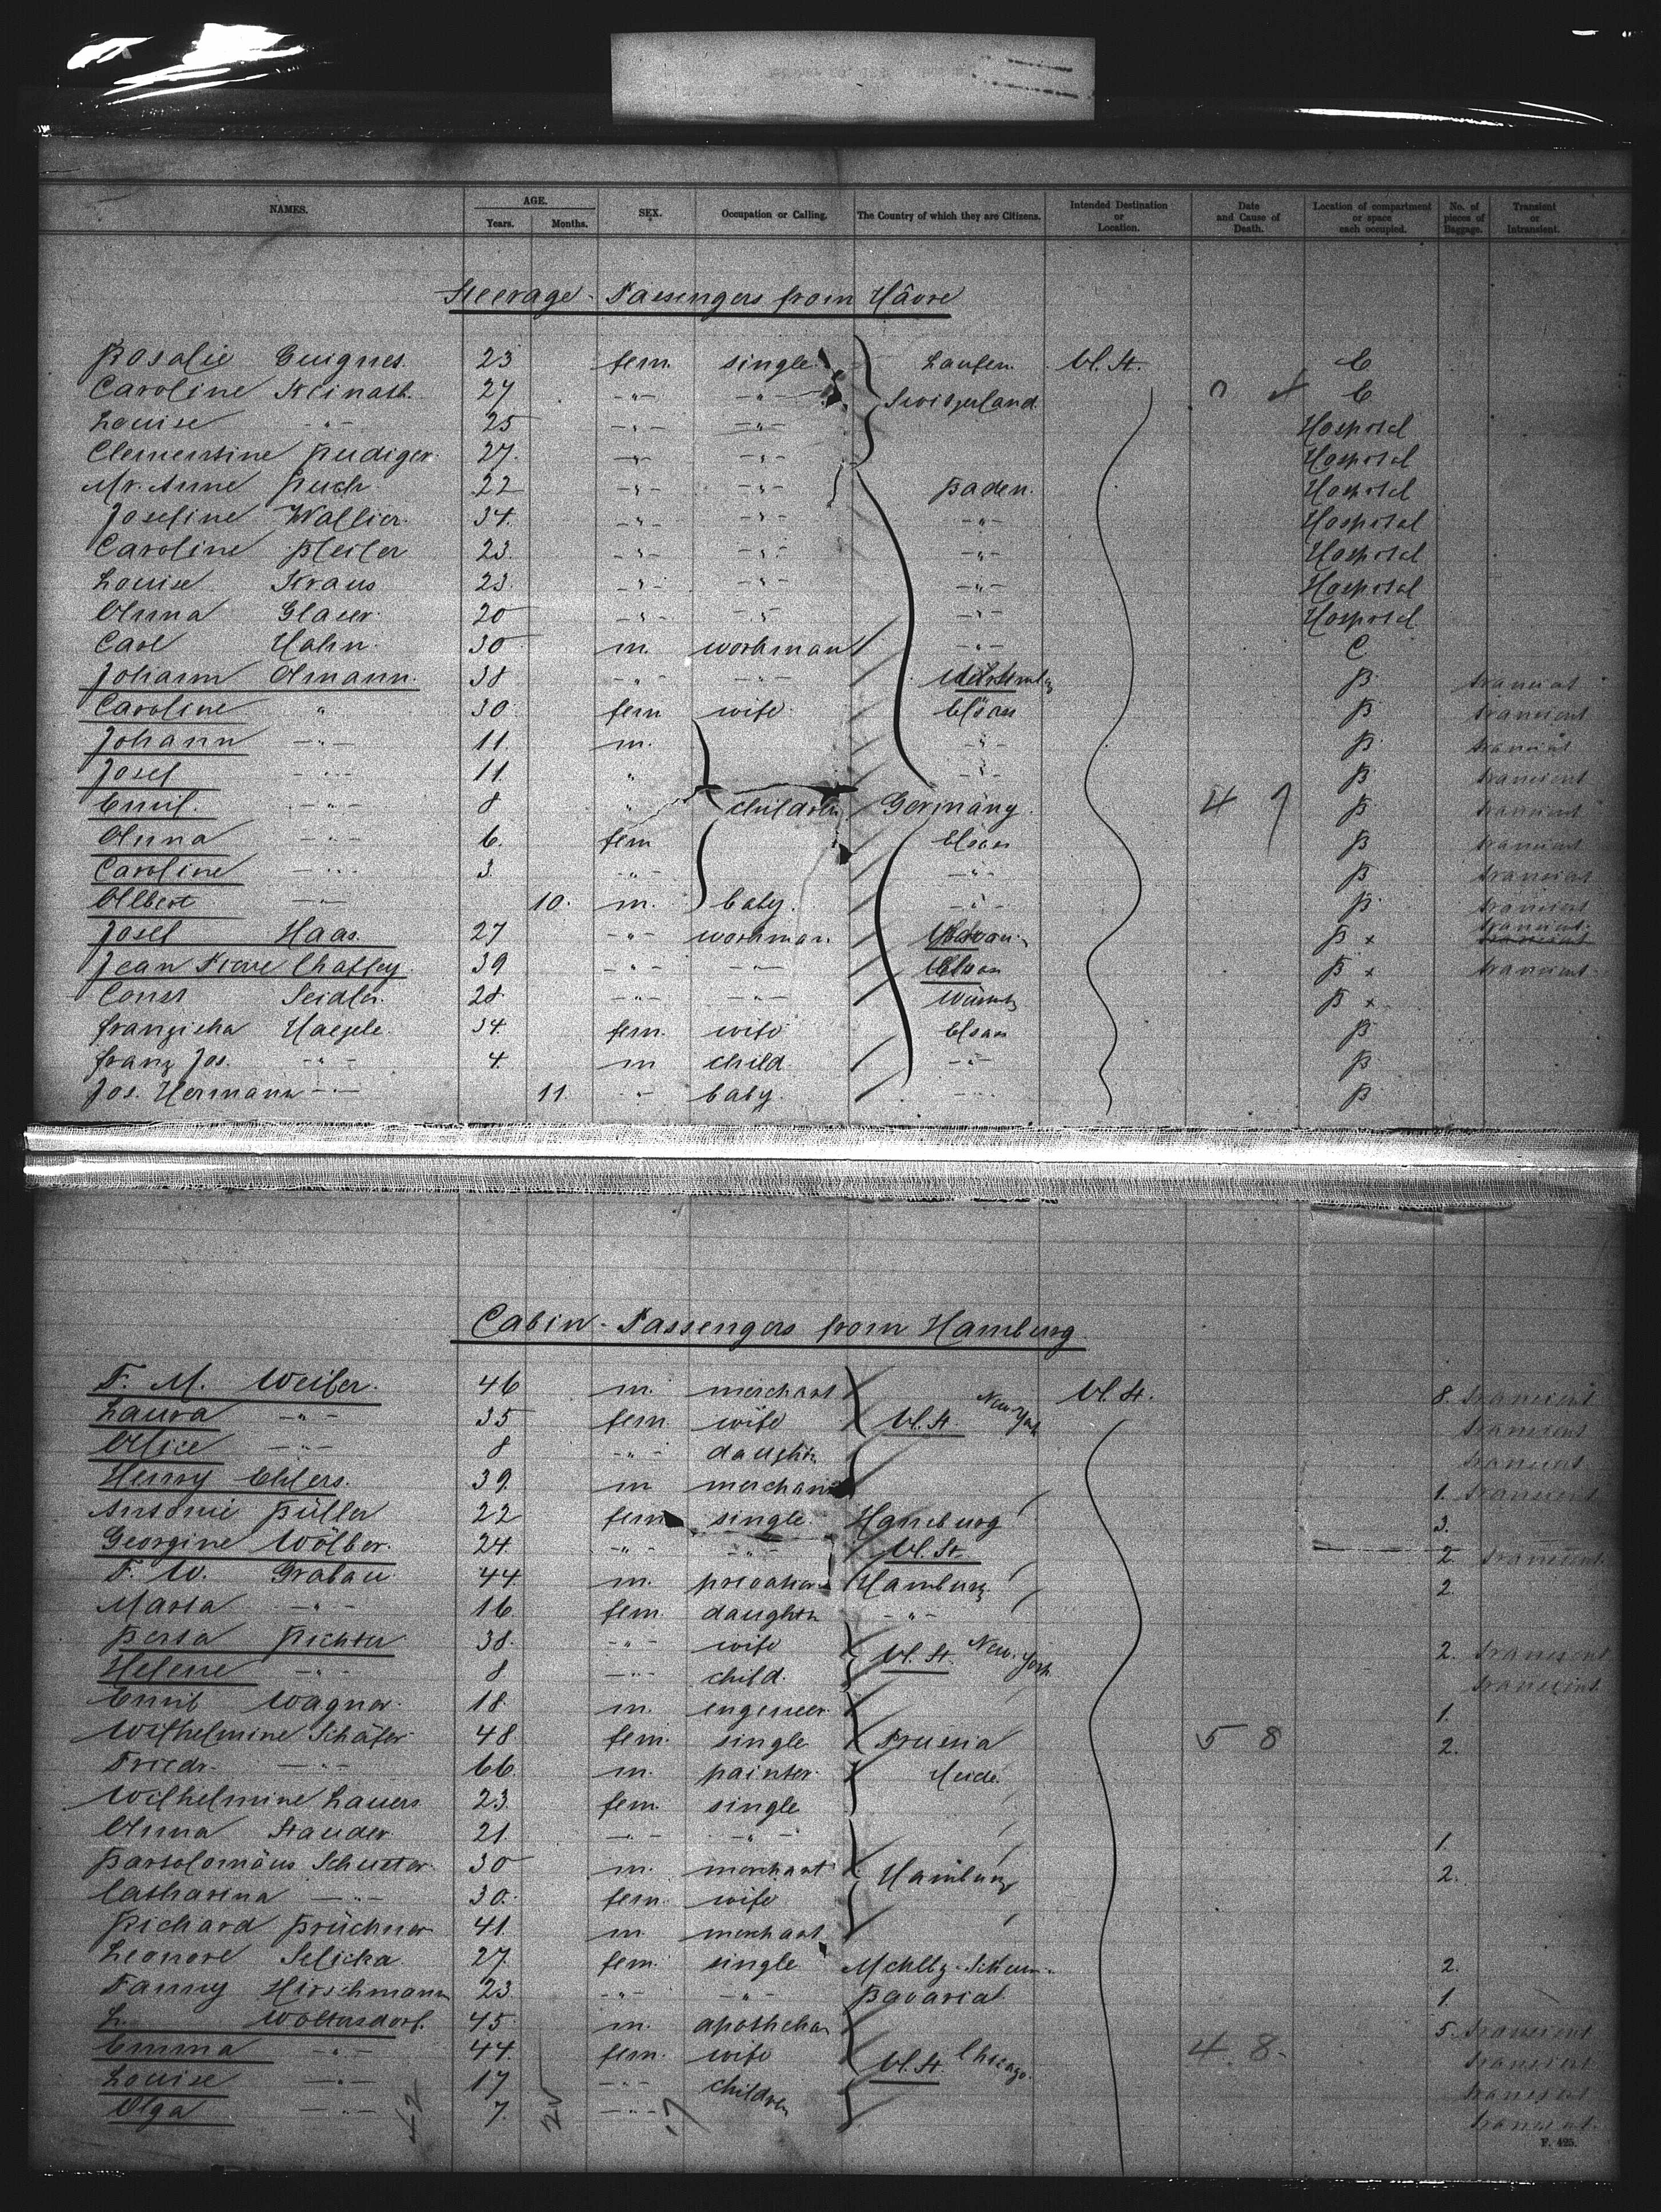 NAMES. AGE. Years. Months. SEX. Occupation or Calling. The Country of which they are Citizens. Intended Destination or Location. Date and Cause of Death. Location of compartment or space each occupied. No. of pieces of Baggage. Transient or Intransient.
Steerage-Passengers from Hâvre
Rosalie Guignes. 23 fem. single Laufen. U. St. C
Caroline Kleinath. 27 -"- -"- Switzerland. C
Louise -"- 25 -"- -"- Hospital
Clementine Rudiger. 27. -"- -"- Hospital
Mr. Anne Ruch 22 -"- -"- Baden. Hospital
Josefine Wallier. 34. -"- -"- -"- Hospital
Caroline Pfeifer 23. -"- -"- -"- Hospital
Louise Kraus 23. -"- -"- -"- Hospital
Anna Glaser 20 -"- -"- -"- Hospital
Carl Hahn. 30 m. workman -"- C
Johann Amann. 38 -"- -"- B transient
Caroline " 30. fem wife. Elsan B transient
Johann -"- 11. m. -"- B transient
Josef -"- 11. " -"- B transient
Emil. -"- 8 " children Germany. 4 7 B transient
Anna -"- 6. fem Elsan B transient
Caroline -"- 3. -"- -"- B transient
Albert -"- 10. m. baby. -"- B transient
Josef Haas. 27 -"- workman B x transient
Jean Pierre Chaffey. 39 -"- -"- Elsan B x transient
Const Seidler. 28. -"- -"- Württ B x
Franziska Haegele. 34. fem. wife Elsan B
Franz Jos. -"- 4. m child. -"- B
Jos. Hermann -"- 11. -"- baby. -"- B
Cabin-Passengers from Hamburg.
F. M. Weiler. 46 m. merchant U. St. 8. transient
Laura -"- 35 fem. wife U. St. New-York transient
Alice -"- 8 -"- daughter transient
Henry Ehlers. 39. m merchant 1. transient
Antonie Büller 22 fem single. Hamburg 3.
Georgine Wölber. 24. -"- -"- U. St. 2 transient
F. W. Grabau 44. m. privatier Hamburg 2.
Marta -"- 16 fem. daughter -"-
Berta Richter 38. -"- wife U. St. New-York 2. transient
Helene -"- 8. -"- child. transient
Emil Wagner. 18. m. engeneer 1.
Wilhelmine Schäfer 48. fem. single Prussia 5 8 2.
Friedr. -"- 66. m. painter. Heide.
Wilhelmine Lauers 23. fem. single
Anna Stauder. 21. -"- -"- 1.
Bartolomäus Schuster. 30 m. merchant Hamburg 2.
Catharina -"- 30. fem. wife
Richard Brüchner 41. m merchant
Leonore Selicka 27. fem. single Mcklbg-Schwer. 2.
Fanny Hirschmann 23. -"- -"- Bavaria 1.
L. Woltersdorf. 45. m. apotheker 5. transient
Emma -"- 44. fem. wife U. St. Chicago. 4. 8. transient
Louise -"- 17 -"- children transient
Olga -"- 7. -"- transient
42
F. 425.